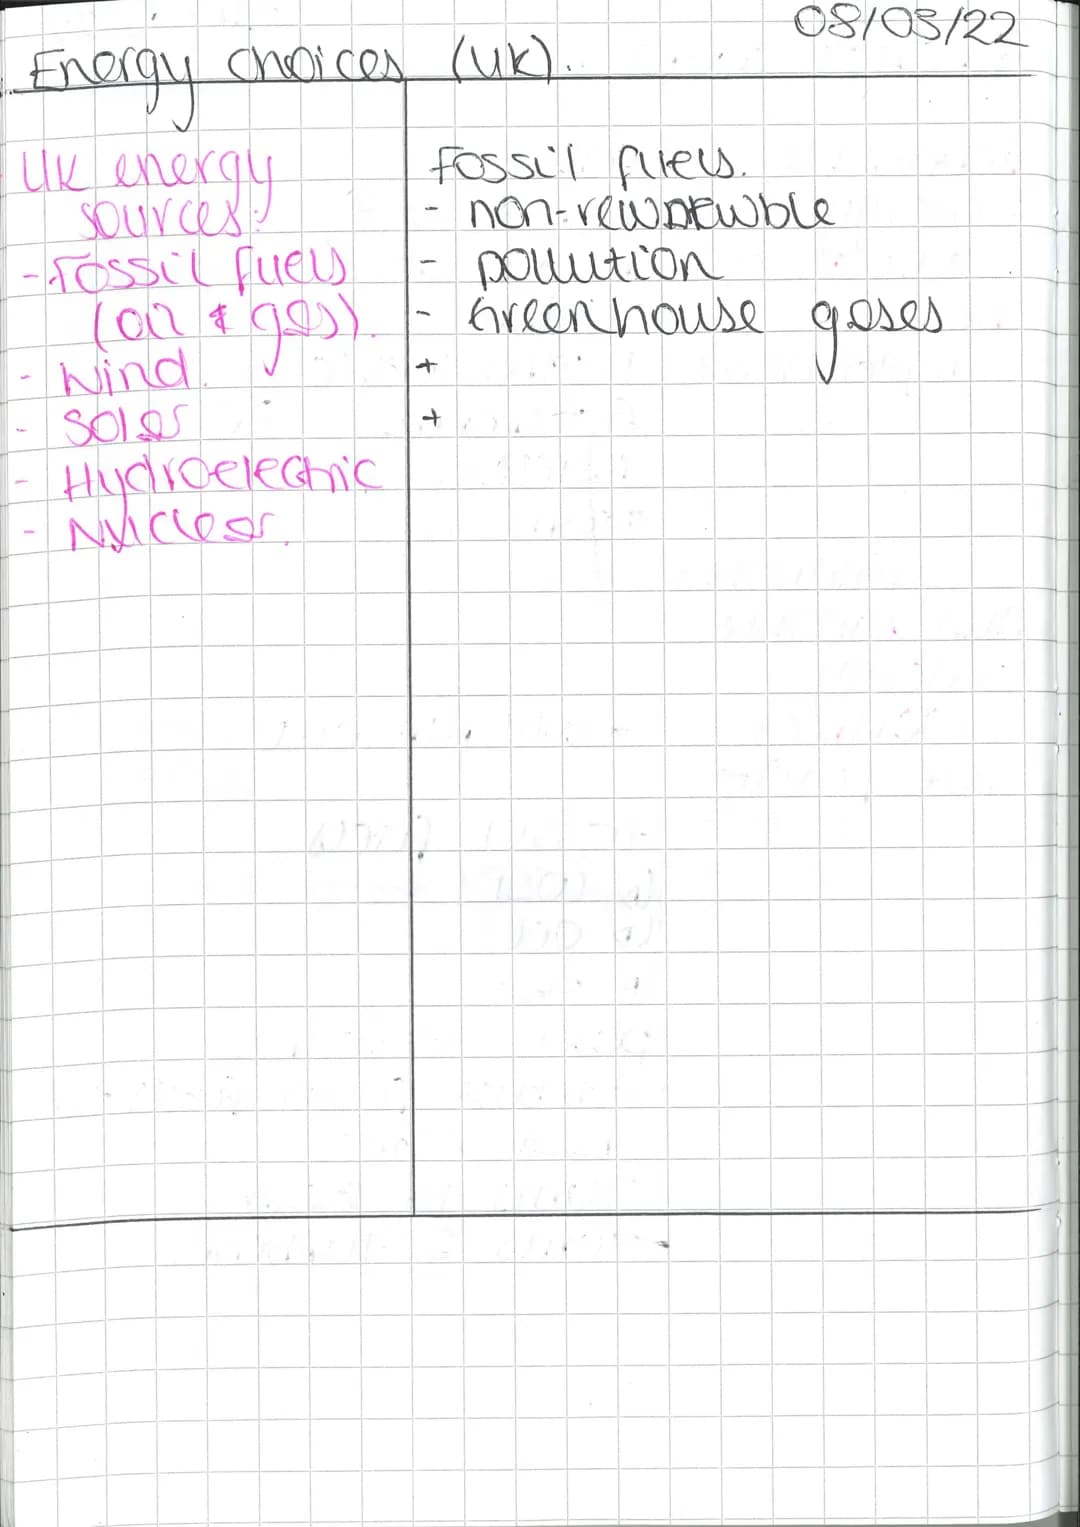 08/03/22
Energy choices (UK).
UK energy
sources:
- Fossil fuels
(oil & gas).
- Wind.
- Solar
- Hydroelectric
- Nuclear.
Fossil fuels.
- non-renewable
- pollution
- Greenhouse gases
+
+